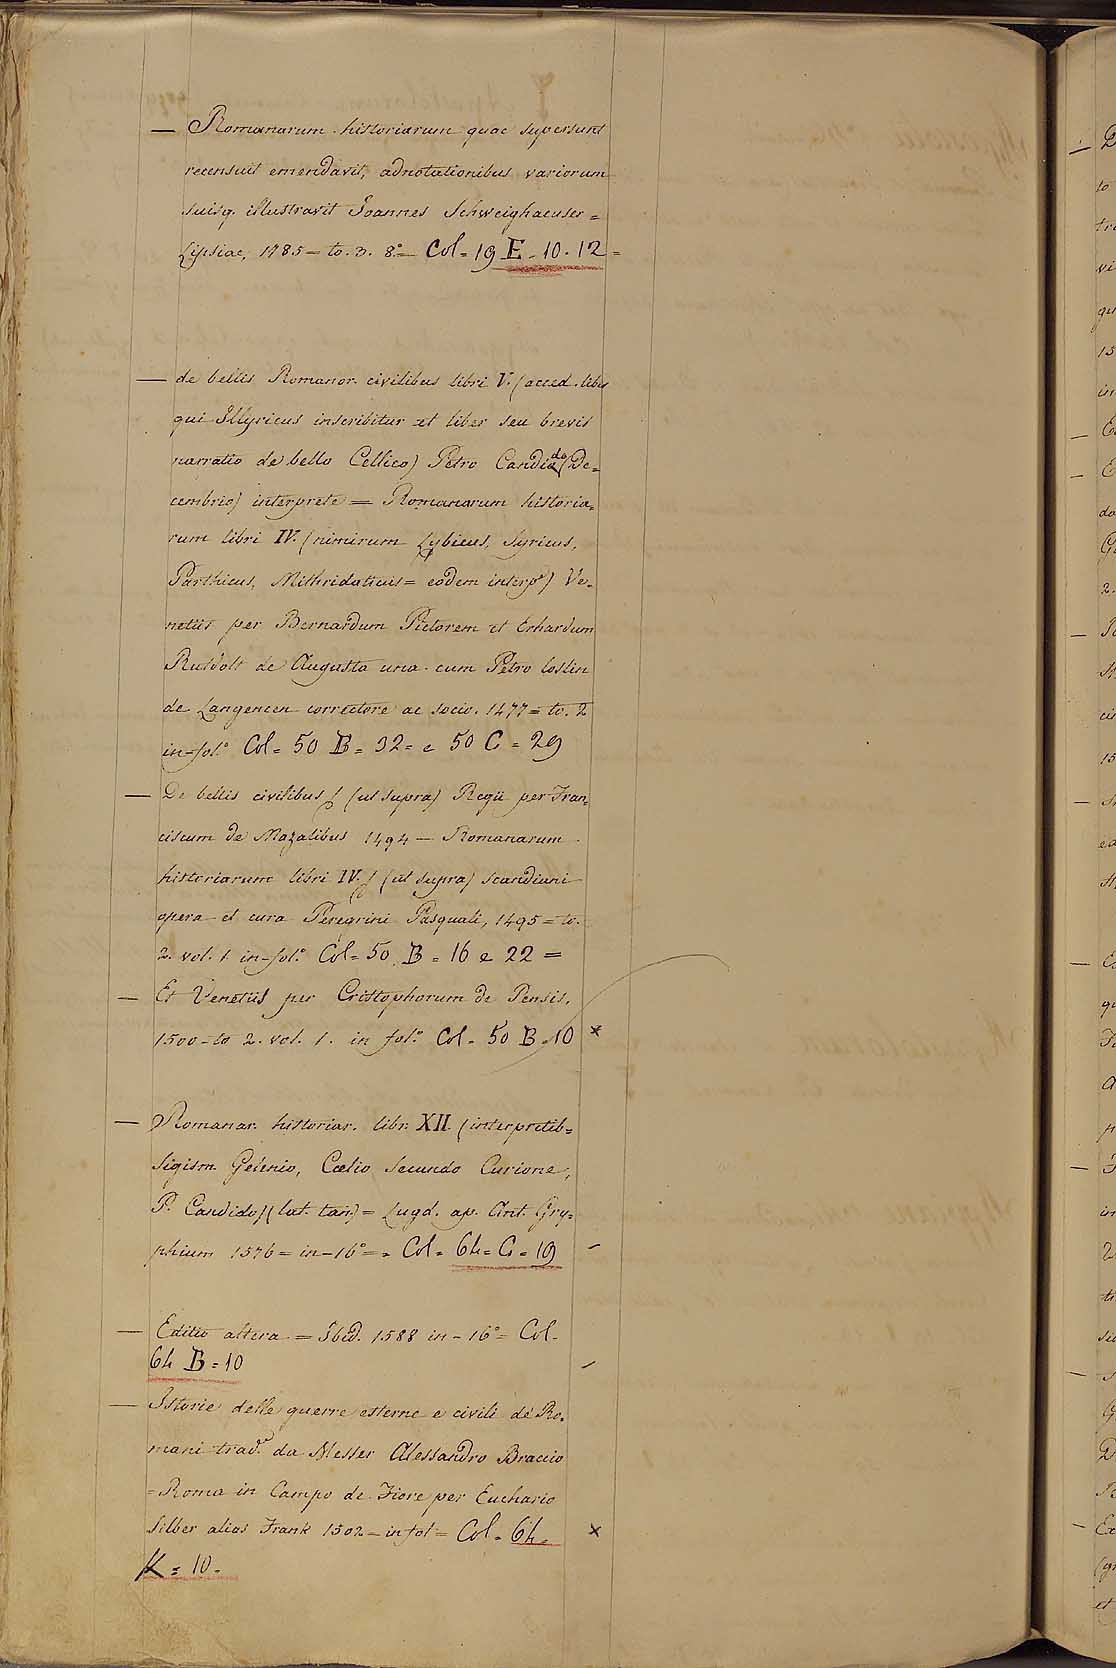 — Romanarum historiarum quae supersunt
recensuit emendavit, adnotationibus variorum
suisq. illustravit Joannes Schweighaeuser =
Lipsiae, 1785 = to. 3. 8.° = Col = 19 E - 10. 12 =
— de bellis Romanor. civilibus libri V. (acced. liber
qui Illyricus inscribitur et liber seu brevis
narratio de bello Cellico) Petro Candido (De=
cembrio) interprete = Romanarum historia=
rum libri IV. (nimirum Lybicus, Syricus,
Parthicus, Mithridaticus = eodem interp.e) Ve=
netiis per Bernardum Pictorem et Erhardum
Rutdolt de Augusta una cum Petro loslein
de Langencen correctore ac socio. 1477 = to. 2
in-fol.° Col = 50 B = 32 = e 50 C = 29
— De bellis civilibus / (ut supra) Regii per Fran=
ciscum de Mazalibus 1494 — Romanarum
historiarum libri IV. / (ut supra) scandiani
opera et cura Peregrini Pasquali, 1495 = to.
2. vol. 1 in-fol.° Col = 50 B = 16 e 22 =
— Et Venetiis per Cristophorum de Pensis,
1500 = to 2. vol. 1. in fol.° Col = 50 B = 10 ×
— Romanar. historiar. libr. XII. (interpretib=
Sigism. Gelenio, Coelio Secundo Curione,
P. Candido) (lat. tan.) = Lugd. ap. Ant. Gry=
phium 1576 = in-16° = = Col = 64 = C = 19 –
— Editio altera = Ibid. 1588 in-16° = Col-
64 B = 10 –
— Istorie delle guerre esterne e civili de' Ro=
mani trad.e da Messer Alessandro Braccio
= Roma in Campo de Fiore per Euchario
Silber alias Frank 1502 = in fol = Col = 64 = ×
K = 10 -